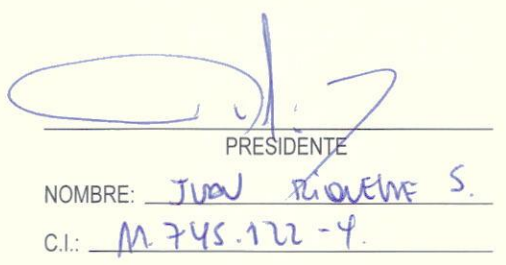 PRESIDENTE
NOMBRE: JUAN RIQUELME S.
C.I.: 11.745.122-4.